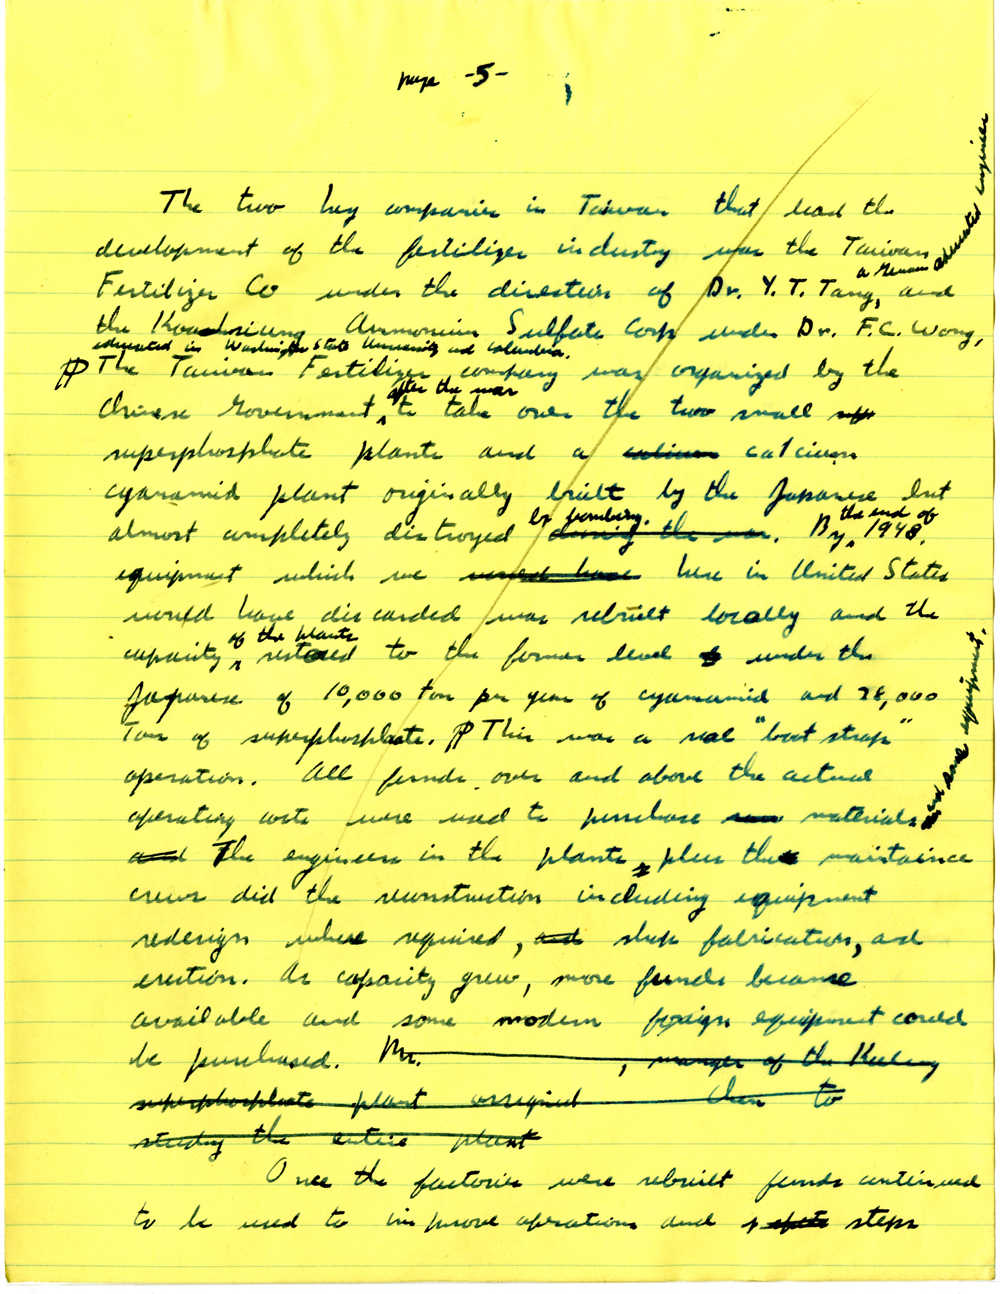 page -5-
The two key companies in Taiwan that lead the
development of the fertilizer industry was the Taiwan
a German educated engineer
Fertilizer Co under the direction of Dr. Y. T. Tang, and
the Kaohsiung Ammonium Sulfate Corp under Dr. F.C. Wong,
educated in Washington State University and Columbia.
¶ The Taiwan Fertilizer company was organized by the
after the war
Chinese Government to take over the two small sup
superphosphate plants and a calcium calcium
cyanamid plant originally built by the Japanese but
by bombing. the end of
almost completely distroyed during the war. By 1948,
equipment which we would have here in United States
would have discarded was rebuilt locally and the
of the plants
capacity restored to the former level under the
Japanese of 10,000 ton per year of cyanamid and 28,000
Tons of superphosphate. ¶ This was a real "boot strap"
operation. All funds over and above the actual
operating costs were used to purchase materials and some equipment.
and The engineers in the plants, plus the maintaince
crews did the reconstruction including equipment
redesign where required, and shop fabrication, and
erection. As capacity grew, more funds became
available and some modern foreign equipment could
be purchased. Mr. , manger of the Keelung
superphosphate plant assigned then to
studing the entire plant
Once the factories were rebuilt funds continued
to be used to improve operations and steps